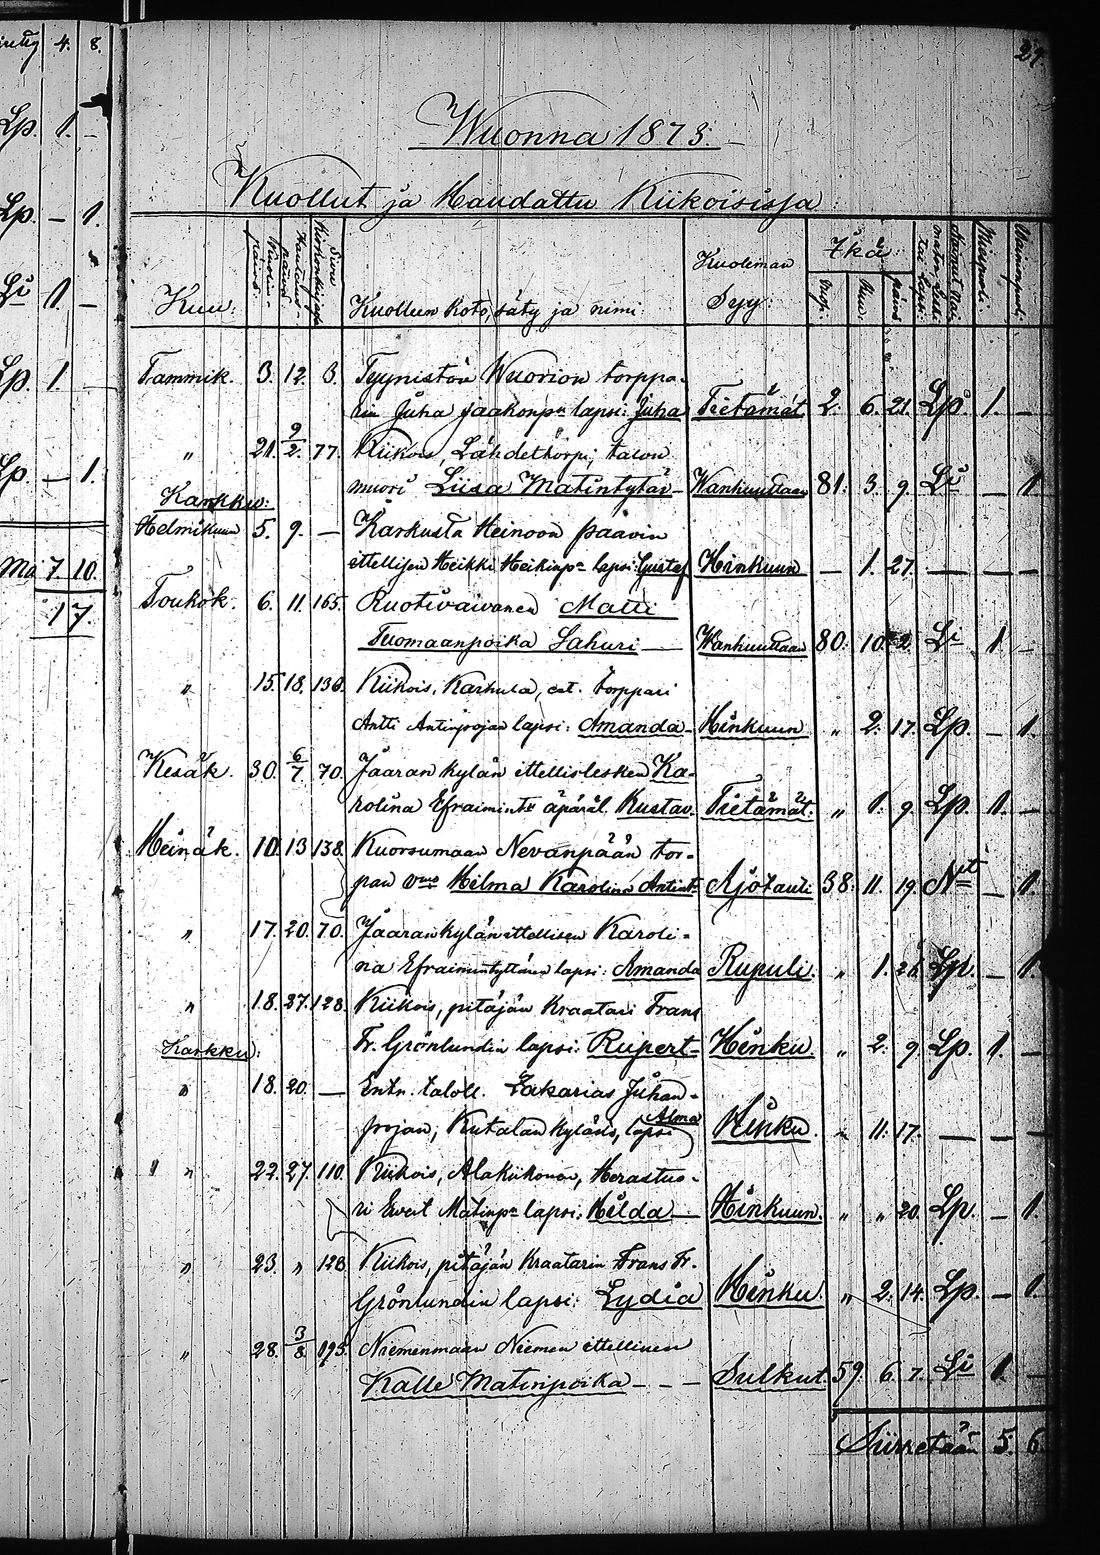 intyg 4. 8.
Lp. 1. –
Lp. – 1.
Li 1. –
Lp. 1. –
Lp. – 1.
Ma 7. 10.
17.
29.
Wuonna 1873.
Kuollut ja Haudattu Kiikoisissa
Kuu: Kuolin-päivä. Hautaus-päivä Sivu Kirkonkirjassa Kuolleen koto, sääty ja nimi: Kuoleman Syy: Ikä: vuos. Kuu. päivä Miespuoli. Waimopuol.
Tammik. 3. 12. 3. Tyynistön Wuorion torppa-
rin Juha Jaakonp. lapsi: Juha Tietämät 2. 6. 21. Lp. 1. –
" 21. 9/2. 77. Kiikois, Lähdetkorpi, talon
muori Liisa Matintytär – Wanhuuttaan 81. 3. 9. Li – 1
Karkku:
Helmikuun 5. 9. – Karkusta Heinoon päävin
ittellisen Heikki Heikinp. lapsi: Gustaf Hinkuun – 1. 27. – – –
Toukok. 6. 11. 165. Ruotivaivanen Matti
Tuomaanpoika Sahuri – Wanhuuttaan 80. 10. 2. Li 1 –
" 15. 18. 136. Kiikois, Karhula, ent. torppari
Antti Antinpojan lapsi: Amanda – Hinkuun " 2. 17. Lp. – 1.
Kesäk. 30. 6/7. 70. Jaaran kylän ittellislesken Ka-
rolina Efraimint. äpäräl. Kustav. Tietämät. " 1. 9. Lp. 1. –
Heinäk. 10. 13 138. Kuorsumaan Nevanpään tor-
pan Hilma Karolina Antint. Ajotauti 38. 11. 19. N – 1.
" 17. 20. 70. Jaarankylän ittellisen Karoli-
na Efraimintyttären lapsi: Amanda Rupuli. " 1. 26. Lp. – 1.
" 18. 27. 128. Kiikois, pitäjän Kraatari Frans
Karkku: Fr. Grönlundin lapsi: Rupert – Hinku. " 2. 9. Lp. 1. –
" 18. 20. – Entn. taloll. Zakarias Juhan-
pojan, Kutalan kylästä, lapsi Alma Hinku. " 11. 17. – – –
" 22. 27. 110. Kiikois, Alakiikonon, Herastuo-
ri Evert Matinp. lapsi: Hilda – Hinkuun. " " 20. Lp. – 1.
" 23. " 128 Kiikois, pitäjän Kraatarin Frans Fr.
Grönlundin lapsi: Lydia Hinku. " 2. 14. Lp. – 1.
" 28. 3/8. 193. Niemenmaan Niemen ittellinen
Kalle Matinpoika – – – Sulkut. 59. 6. 7. Li 1. –
Siirretään 5. 6.